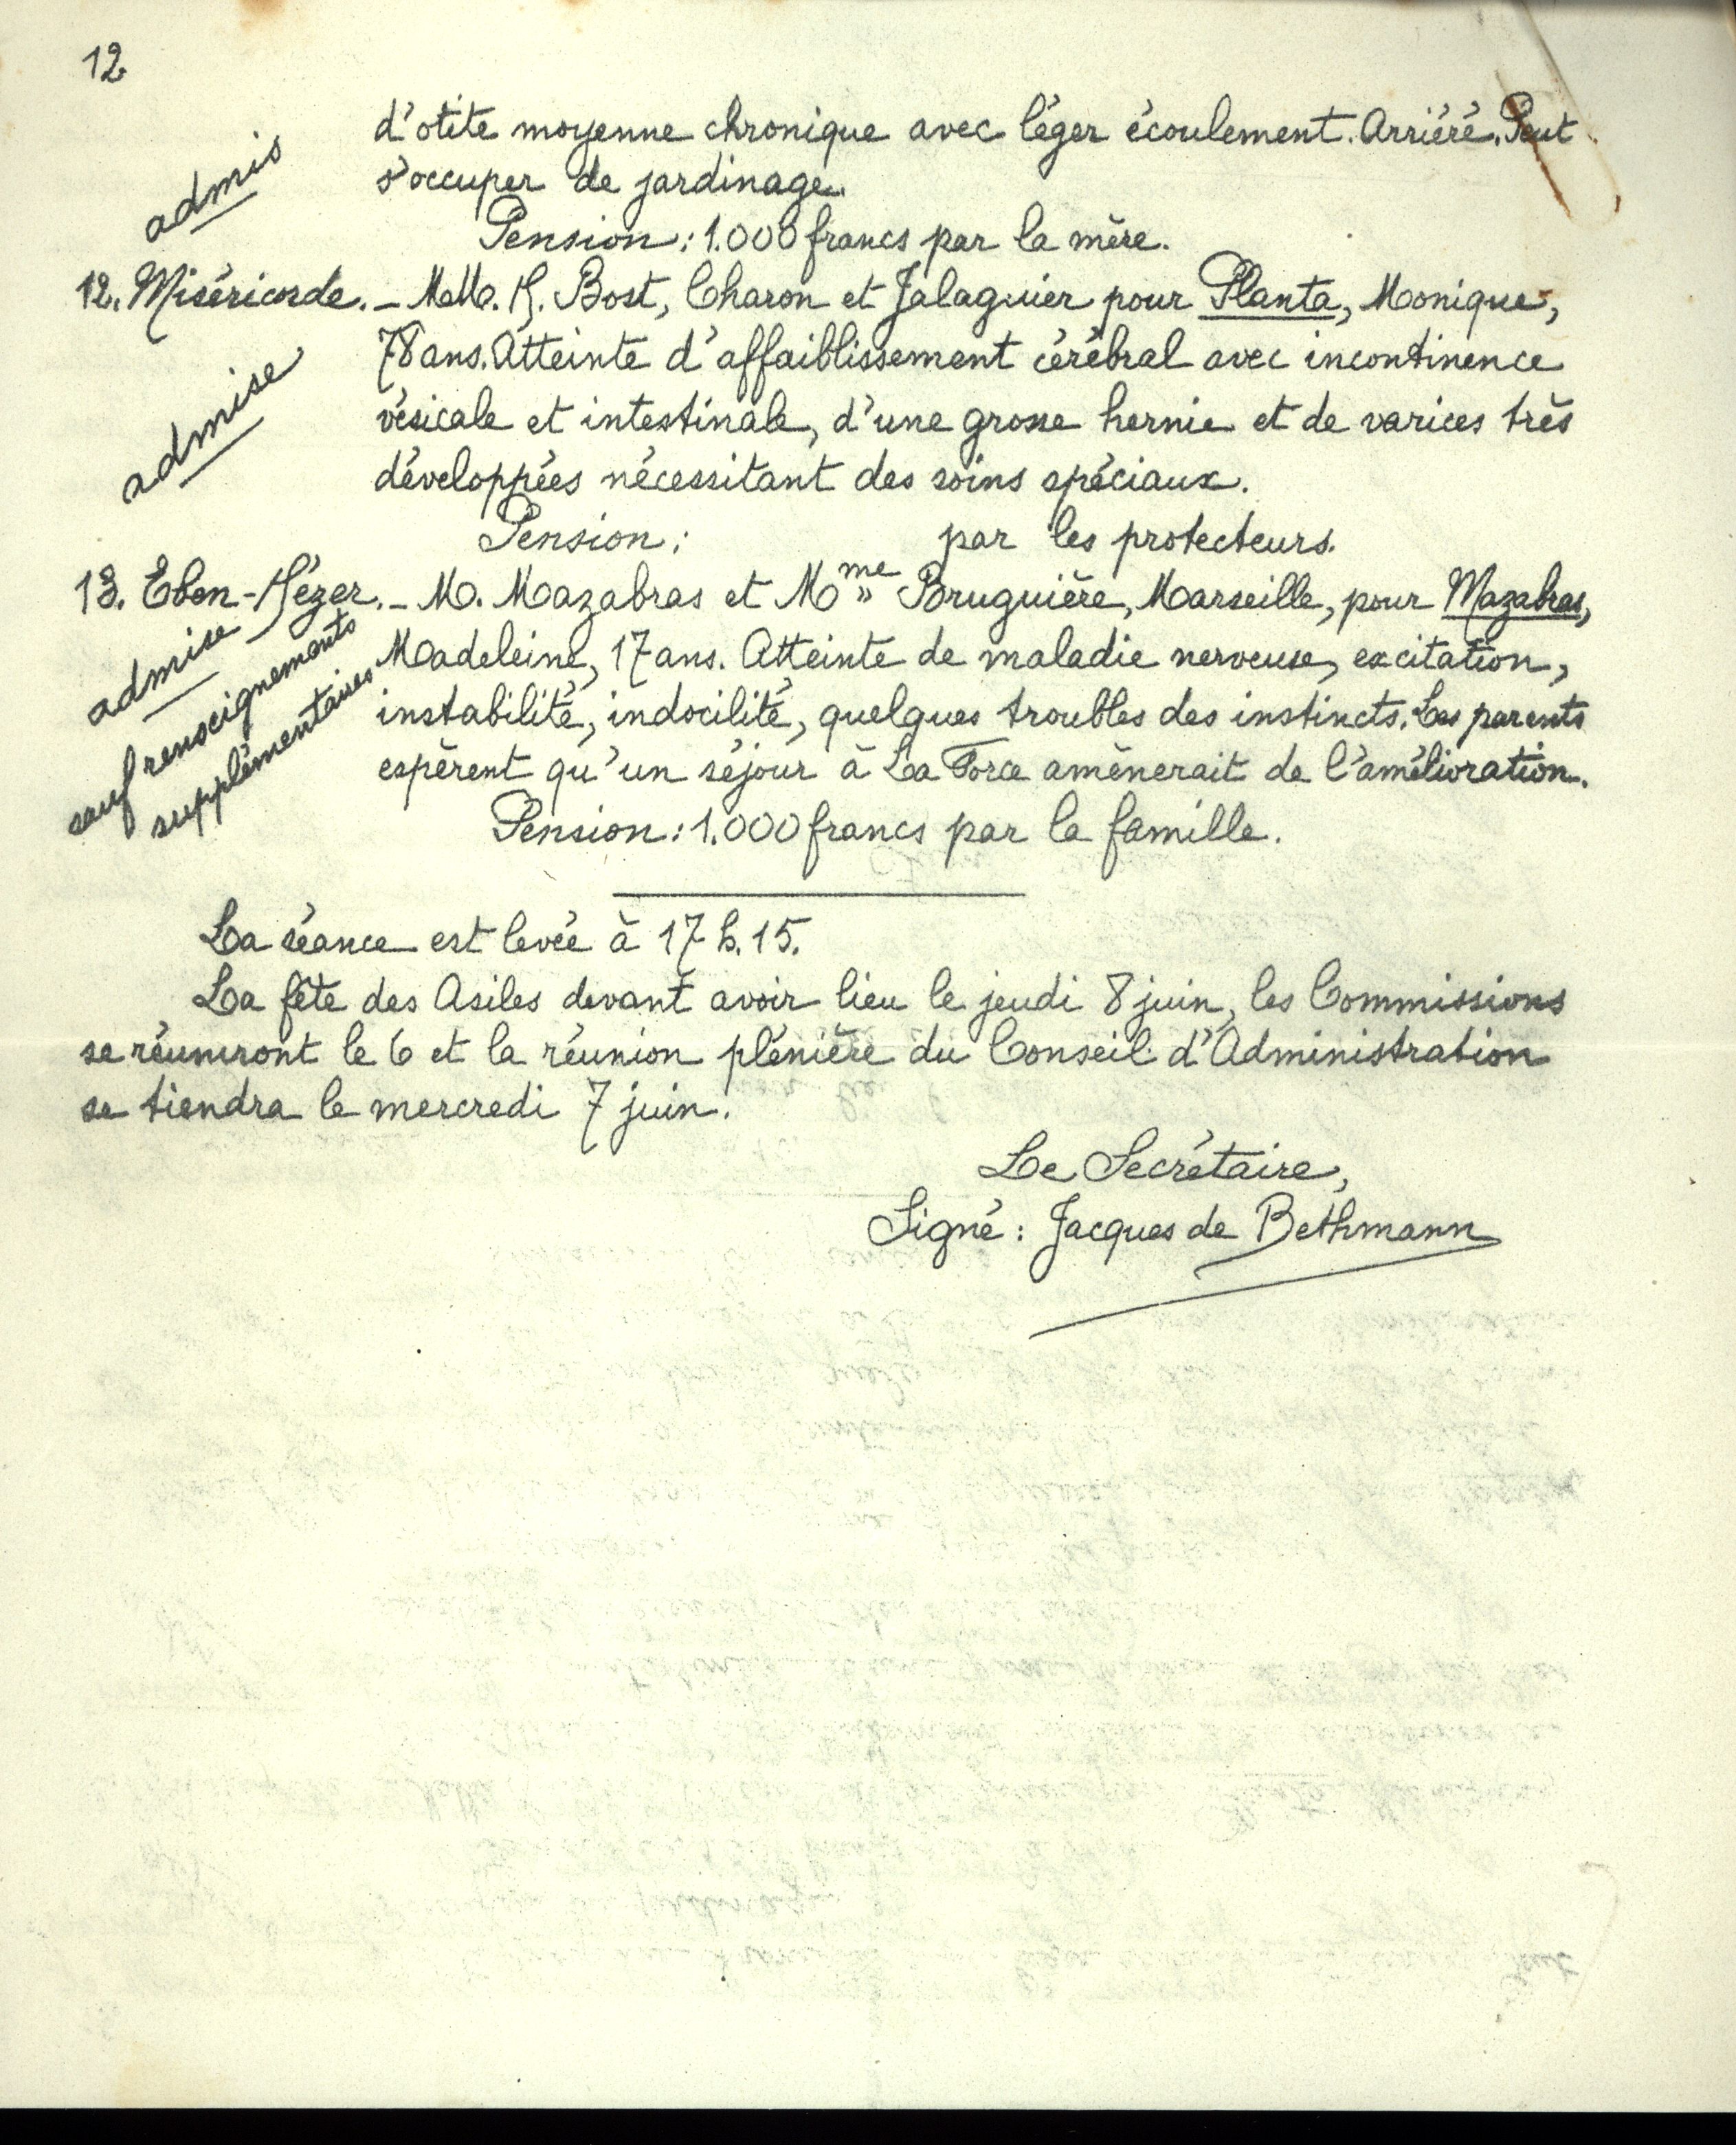 12
d'otite moyenne chronique avec léger écoulement. Arriéré. Peut
s'occuper de jardinage.
admis
Pension : 1.000 francs par la mère.
12. Miséricorde. _ MM. H. Bost, Charon et Jalaguier pour Planta, Monique,
78 ans. Atteinte d'affaiblissement cérébral avec incontinence
admise
vésicale et intestinale, d'une grosse hernie et de varices très
développées nécessitant des soins spéciaux.
Pension : par les protecteurs.
13. Eben-Hézer. _ M. Mazabras et Mme Bruguière, Marseille, pour Mazabras,
admise
sauf renseignements
supplémentaires
Madeleine, 17 ans. Atteinte de maladie nerveuse, excitation,
instabilité, indocilité, quelques troubles des instincts. Les parents
espèrent qu'un séjour à La Force amènerait de l'amélioration.
Pension : 1.000 francs par la famille.
La séance est levée à 17 h. 15.
La fête des Asiles devant avoir lieu le jeudi 8 juin, les Commissions
se réuniront le 6 et la réunion plénière du Conseil d'Administration
se tiendra le mercredi 7 juin.
Le Secrétaire,
Signé : Jacques de Bethmann